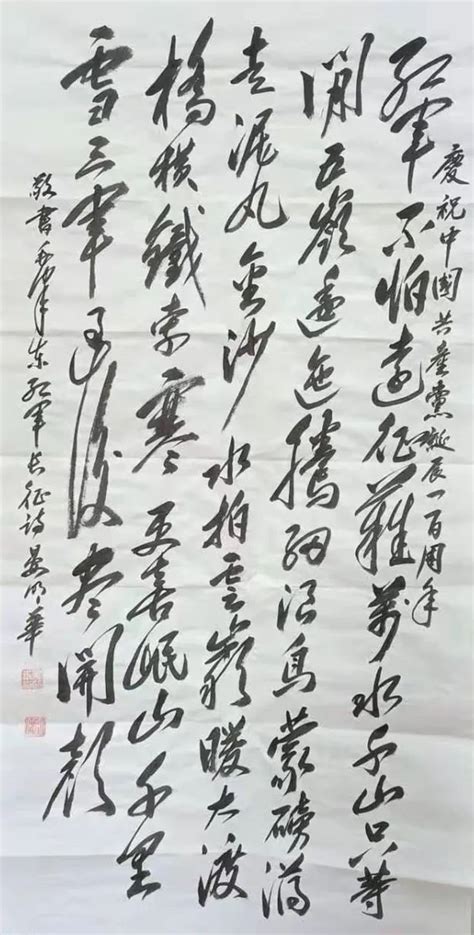 慶祝中國共產黨誕辰一百周年
紅軍不怕遠征難萬水千山只等
閒五嶺逶迤騰細浪烏蒙磅礴
走泥丸金沙水拍雲崖暖大渡
橋橫鐵索寒更喜岷山千里
雪三軍過後盡開顏
敬書毛澤東紅軍長征詩吴明華